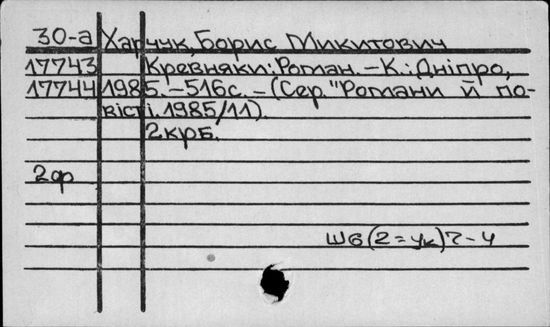 30-а Харчук, Борис Микитович
17743 Кревняки: Роман. – К.: Дніпро,
17744 1985. – 516с. – (Сер. "Романи й по-
вісті. 1985/11).
2крб.
2ф
Ш6(2=Ук)7-4